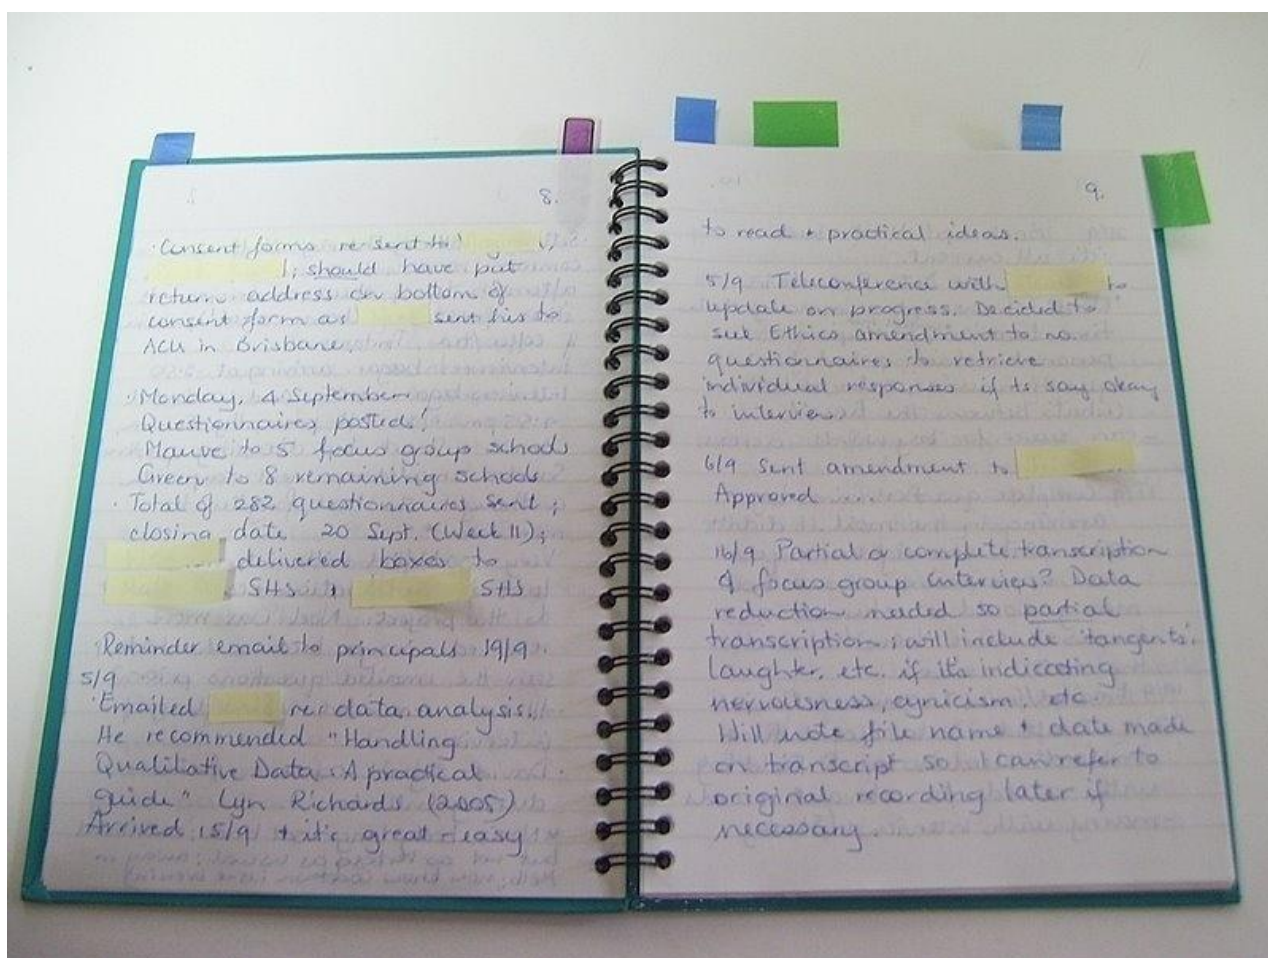 8.
· Consent forms re sent to
; should have put
return address on bottom of
consent form as sent his to
ACU in Brisbane.
· Monday, 4 September
Questionnaires posted!
Mauve to 5 focus group schools
Green to 8 remaining schools
· Total of 282 questionnaires sent ;
closing date 20 Sept. (Week 11);
delivered boxes to
SHS + SHS
· Reminder email to principals 19/9.
5/9
· Emailed re data analysis.
He recommended "Handling
Qualitative Data : A practical
guide" Lyn Richards (2005)
Arrived 15/9 + it's great + easy
9.
to read + practical ideas.
5/9 Teleconference with to
update on progress. Decided to
Ethics amendment to no.
questionnaires to retrieve
individual responses if ts say okay
to interviews
6/9 Sent amendment to .
Approved
16/9 Partial or complete transcription
of focus group interview? Data
reduction needed so partial
transcription ; will include 'tangents'
laughter, etc. if it's indicating
nervousness, cynicism, etc
Will note file name + date made
on transcript so I can refer to
original recording later if
necessary.